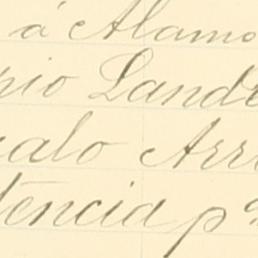 á Alamo
pio Land
calo Arr
tencia pa